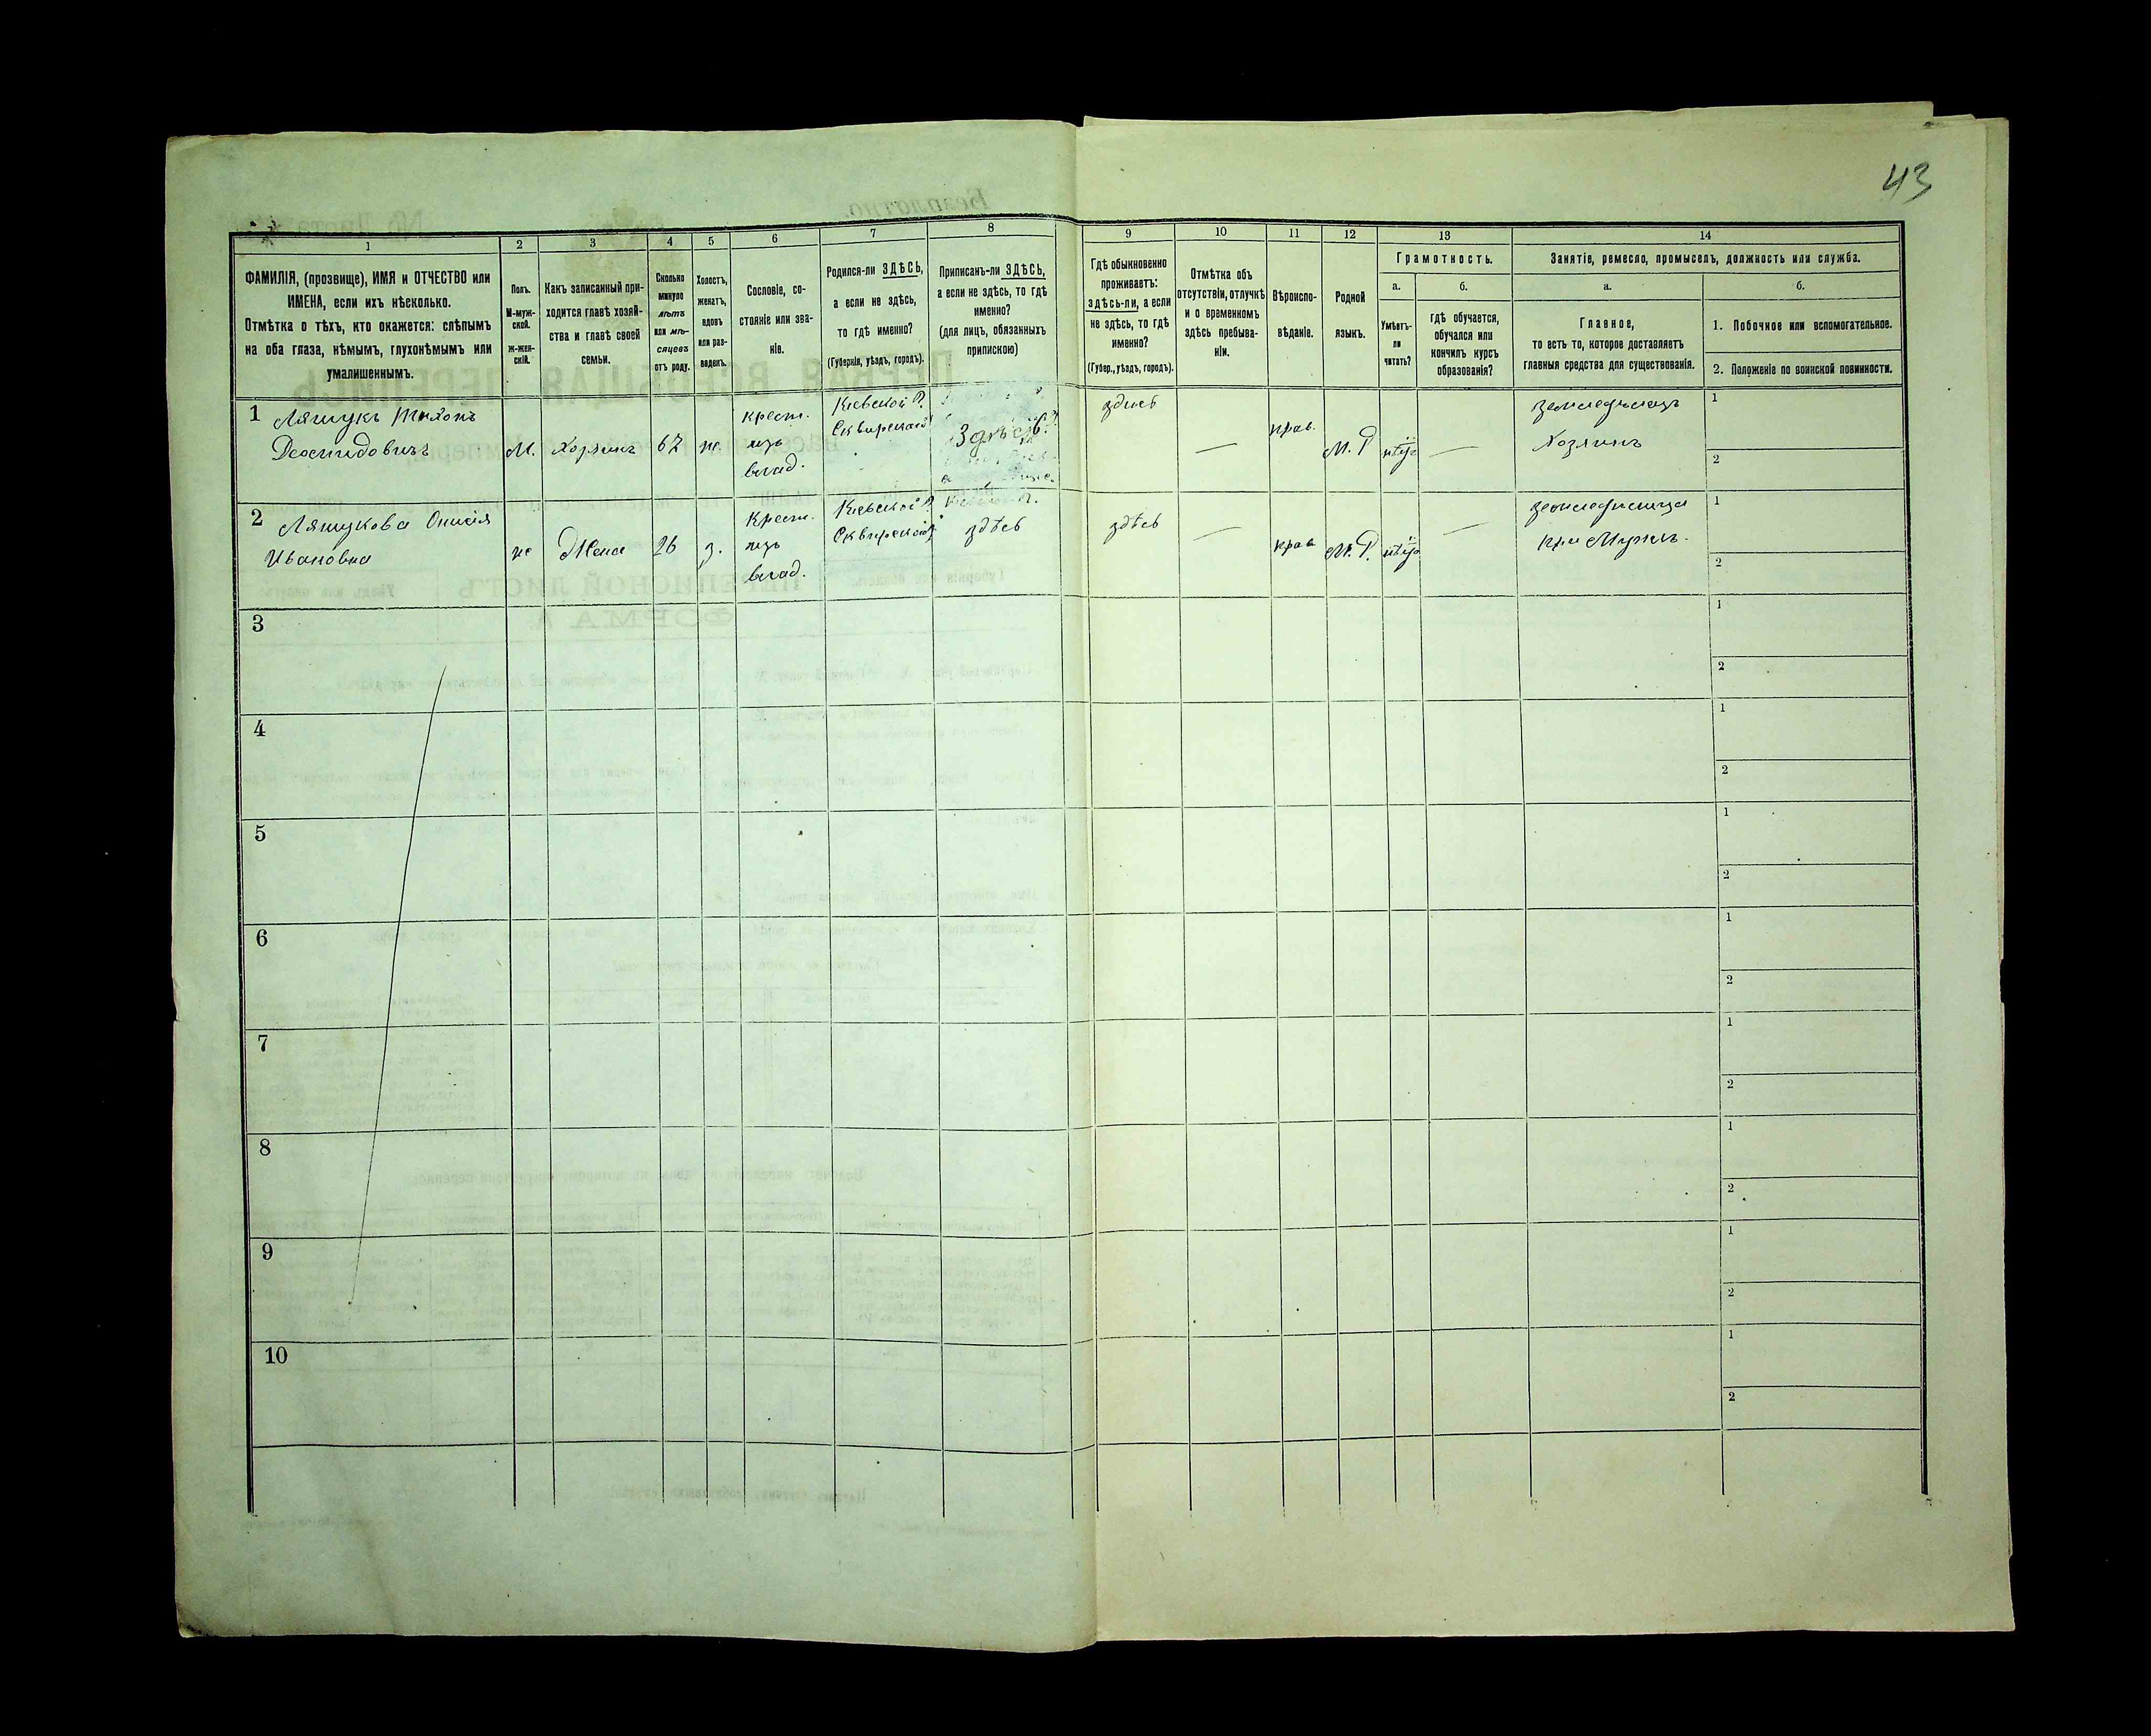 43
1 2 3 4 5 6 7 8 9 10 11 12 13 14
ФАМИЛІЯ, (прозвище), ИМЯ и ОТЧЕСТВО или
ИМЕНА, если ихъ нѣсколько.
Отмѣтка о тѣхъ, кто окажется: слѣпымъ
на оба глаза, нѣмымъ, глухонѣмымъ или
умалишеннымъ.
Полъ.
М-муж-
ской.
ж-жен-
скій.
Какъ записанный при-
ходится главѣ хозяй-
ства и главѣ своей
семьи.
Сколько
минуло
лѣтъ
или мѣ-
сяцевъ
отъ роду.
Холостъ,
женатъ,
вдовъ
или раз-
веденъ.
Сословіе, со-
стояніе или зва-
ніе.
Родился-ли ЗДѢСЬ,
а если не здѣсь,
то гдѣ именно?
(Губернія, уѣздъ, городъ).
Приписанъ-ли ЗДѢСЬ,
а если не здѣсь, то гдѣ
именно?
(для лицъ, обязанныхъ
припискою)
Гдѣ обыкновенно
проживаетъ:
здѣсь-ли, а если
не здѣсь, то гдѣ
именно?
(Губер., уѣздъ, городъ).
Отмѣтка объ
отсутствіи, отлучкѣ
и о временномъ
здѣсь пребыва-
ніи.
Вѣроиспо-
вѣданіе.
Родной
языкъ.
Грамотность.
а.
Умѣетъ-
ли
читать?
б.
гдѣ обучается,
обучался или
кончилъ курсъ
образованія?
Занятіе, ремесло, промыселъ, должность или служба.
а.
Главное,
то есть то, которое доставляетъ
главныя средства для существованія.
б.
1. Побочное или вспомогательное.
2. Положеніе по воинской повинности.
1 Ляшукъ Тихонъ
Деомидовичъ
М.
Хозяинъ
67
ж.
крест.
изъ
влад.
Кіевской Г.
Сквирскаго
Здѣсь
здѣсь
—
прав.
М. Р
нѣтъ
—
земледѣлецъ
Хозяинъ
1
2
2 Ляшукова
Ивановна
ж
Жена
26
з.
Крест.
изъ
влад.
Кіевской Г.
Сквирскаго
здѣсь
здѣсь
—
прав
М. Р.
нѣтъ
—
земледѣлица
при Мужѣ.
1
2
3
1
2
4
1
2
5
1
2
6
1
2
7
1
2
8
1
2
9
1
2
10
1
2